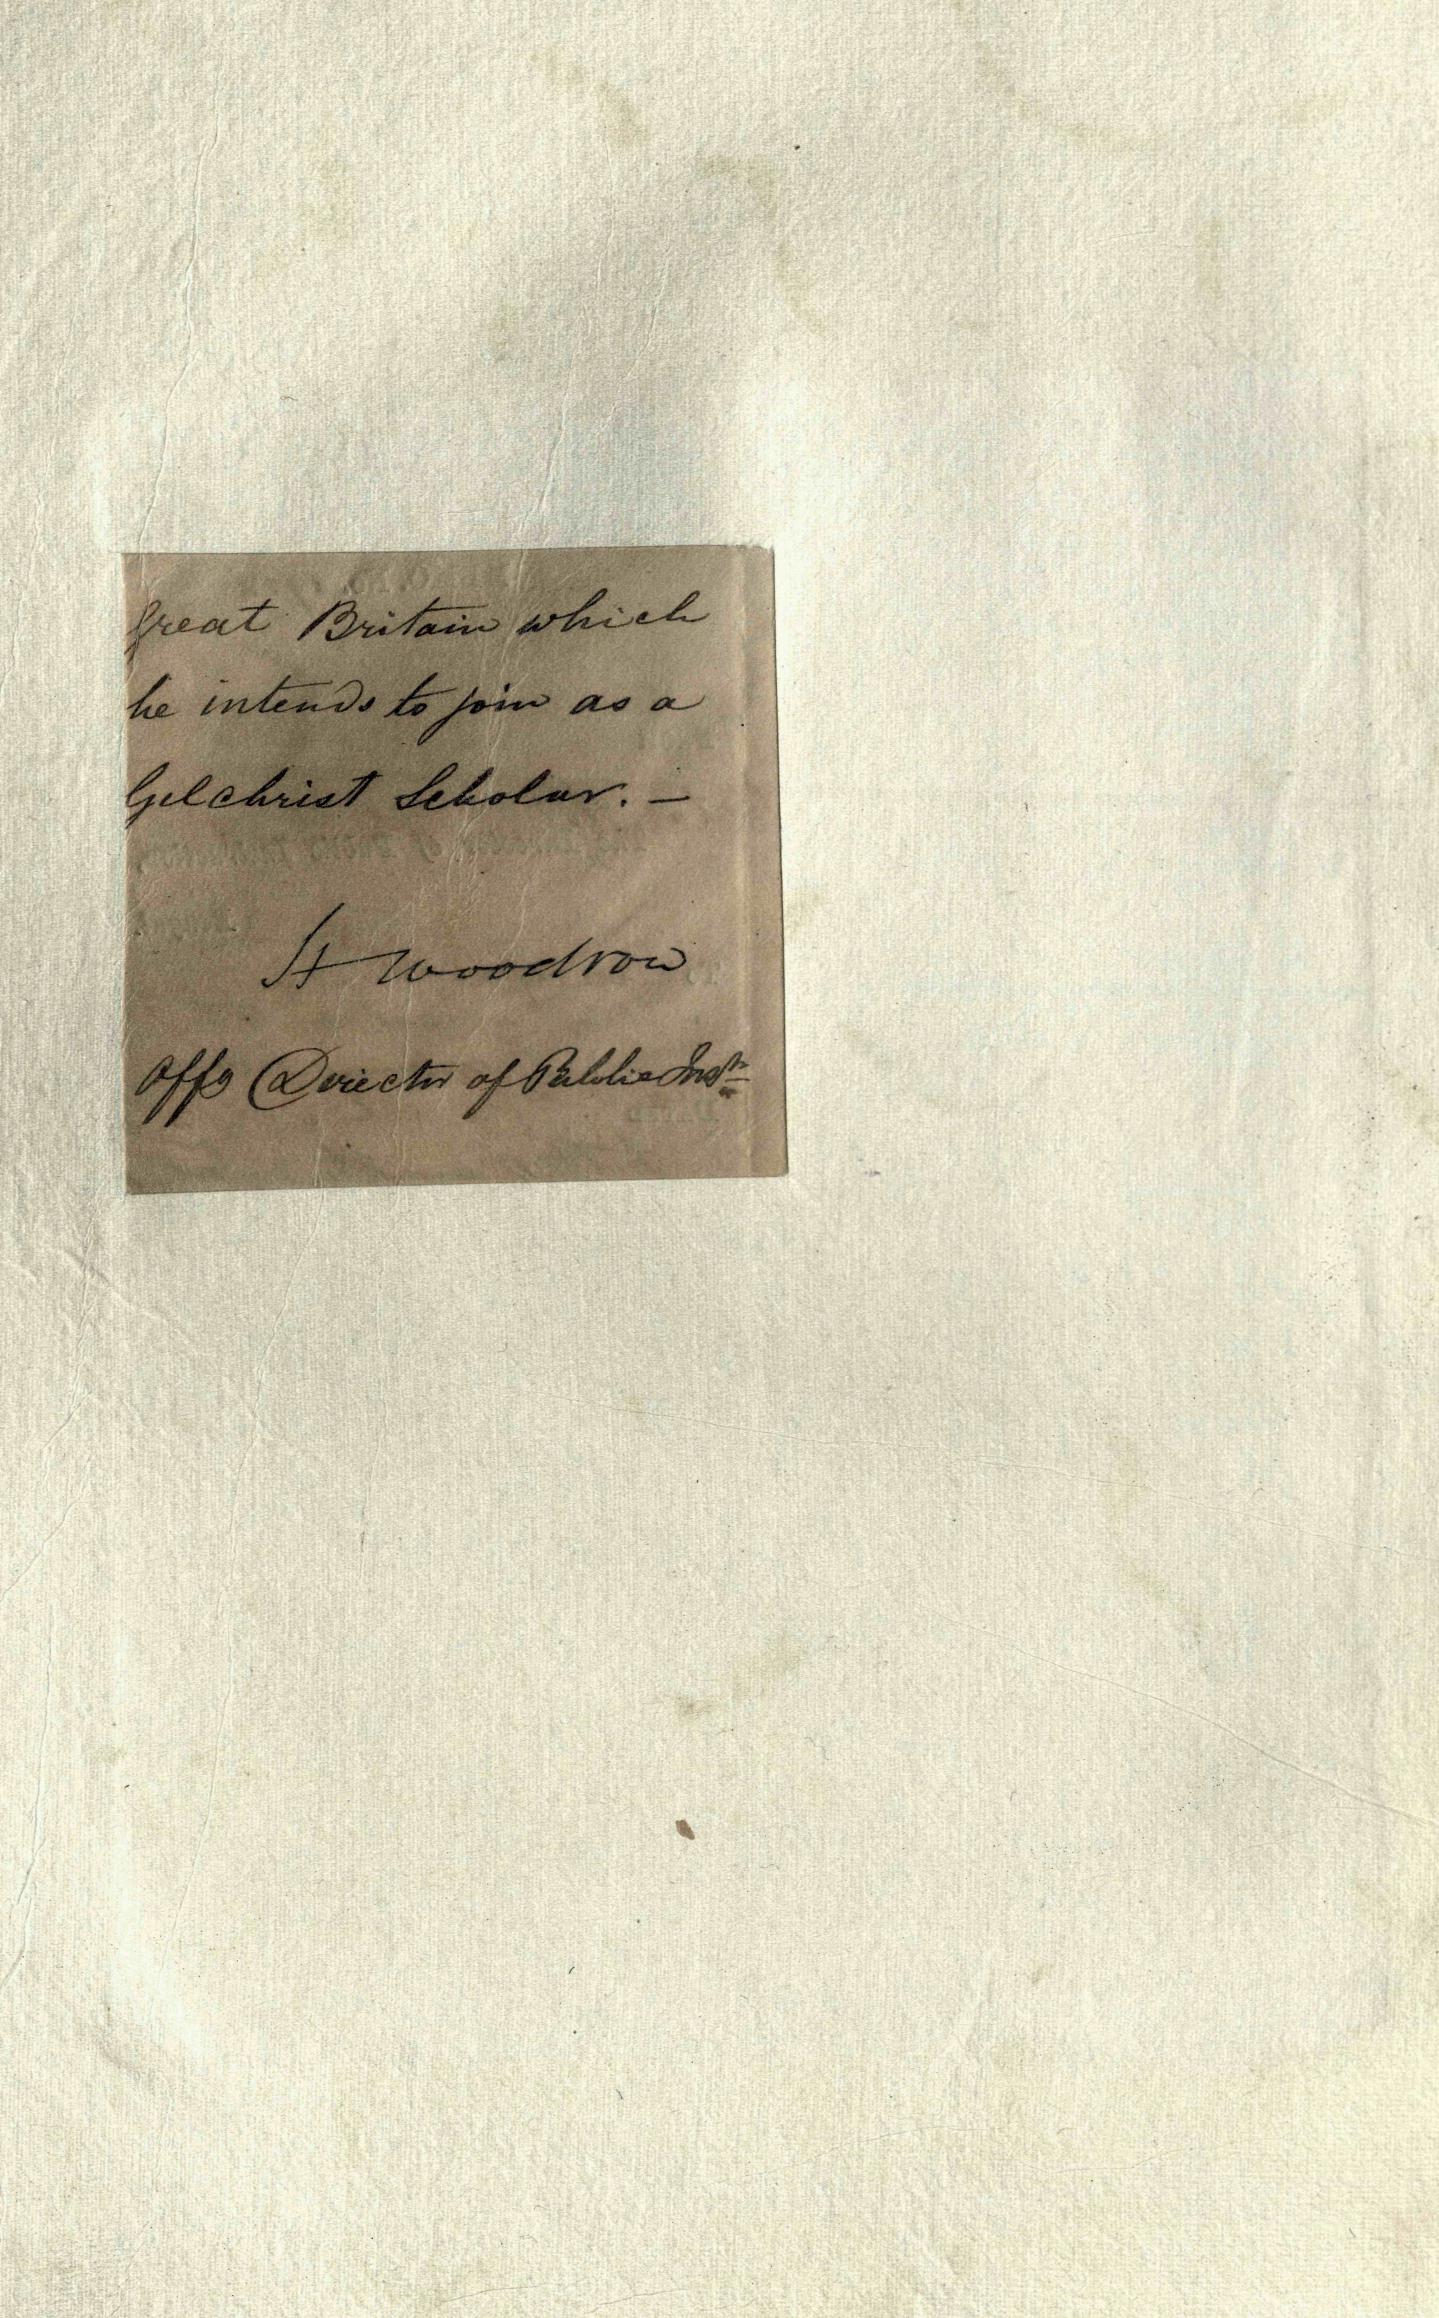 Great Britain which
he intends to join as a
Gilchrist Scholar. —
H Woodrow
Offg Director of Public Instn